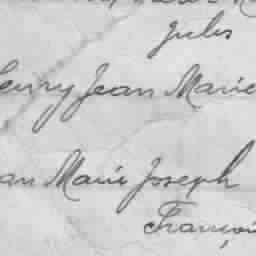 Jules
Henry Jean Marie
Jean Marie Joseph
François